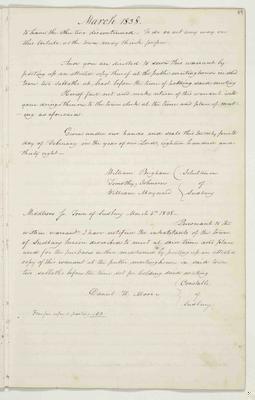 March 1838.
to have the other two discontinued. To do or act any way on
this article as the town may think proper.
And you are directed to serve this warrant by
posting up an attested copy thereof at the public meeting house in said
town two sabbaths at least before the time of holding said meeting
Hereof fail not and make return of this warrant with
your doings thereon to the town clerk at the time and place of meet-
ing as aforesaid
Given under our hands and seals this twenty fourth
day of February in the year of our Lord, eighteen hundred and
thirty eight—
William Brigham
Timothy Johnson
William Maynard
Selectmen
of
Sudbury
Middlesex Ss. Town of Sudbury March 5th 1838.
Pursuant to the
within warrant I have notified the inhabitants of the town
of Sudbury herein described to meet at said time and place
and for the purposes within mentioned by posting up an attested
copy of this warrant at the public meetinghouse in said town
two sabbaths before the time set for holding said meeting
Daniel W. Moore
Constable
of
Sudbury